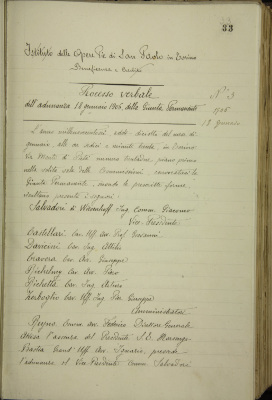 33
Istituto delle Opere Pie di San Paolo in Torino
Beneficenza e Credito
Processo verbale
dell'adunanza 18 gennaio 1905 della Giunta Permanente
N.° 3
1905
18 Gennaio
L'anno millenovecentocinque, addì diciotto del mese di
gennaio, alle ore e minuti trenta, in Torino
Via Monte di Pietà numero trentadue, piano primo
nella solita sala delle Commissioni, convocatasi la
Giunta Permanente, secondo le prescritte forme,
risultano presenti i signori:
Salvadori di Wiesenhoff Ing. Comm. Giacomo
Vice Presidente
Castellari Cav. Uff. Avv. Prof. Giovanni
Davicini Cav. Ing. Attilio
Cav. Avv. Giuseppe
Cav. Avv.
Cav. Ing.
Zerboglio Cav. Uff. Ing. Giuseppe
Amministratori
Regno Comm. Avv. Federico Direttore Generale
Attesa l'assenza del Presidente S.E.
Grand'Uff. Avv. Ignazio, presiede
l'adunanza il Vice Presidente Comm. Salvadori